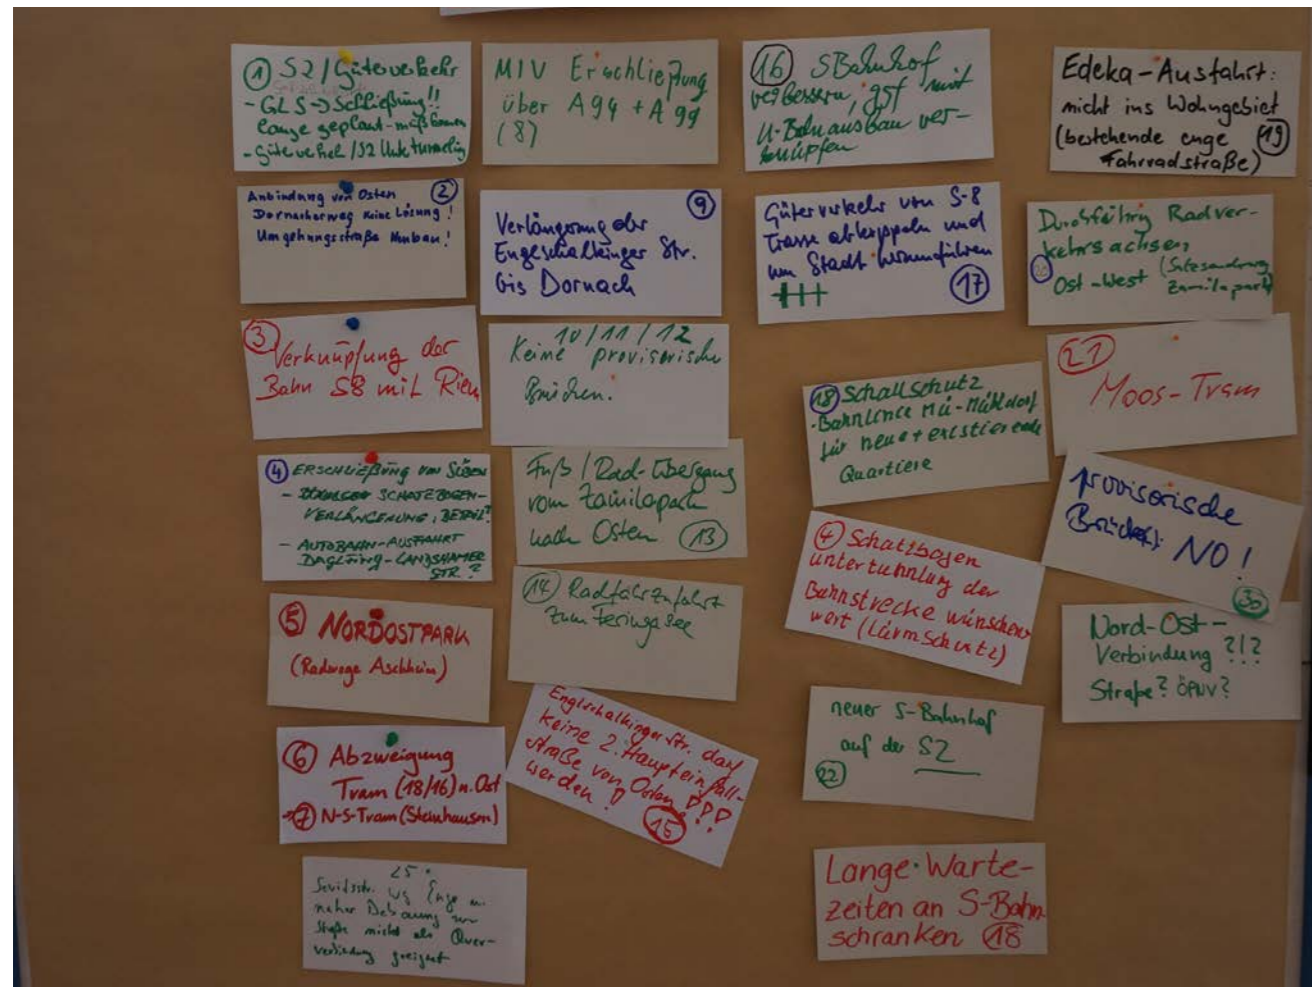 ① S2 / Güterverkehr
- GLS → Schließung!!
lange geplant -
- Güterverkehr / S2
Anbindung von Osten ②
Dornacherweg keine Lösung!
Umgehungsstraße !
③ Verknüpfung der
Bahn S8 mit Riem
④ ERSCHLIEßUNG VON SÜDEN
- SCHATZBOGEN-
VERLÄNGERUNG,
- AUTOBAHN-AUSFAHRT
DAGLFING-LANGSHAMER
STR. ?
⑤ NORDOSTPARK
(Radwege Aschheim)
⑥ Abzweigung
Tram (18/16) n. Ost
⑦ N-S-Tram (Steinhausen)
25.
wg Enge u.
naher Bebauung zur
Straße nicht als Quer-
verbindung geeignet
MIV Erschließung
über A94 + A99
(8)
⑨
Verlängerung der
Englschalkinger Str.
bis Dornach
10/11/12
Keine provisorische
Brücken.
Fuß / Rad-Übergang
vom Zamilapark
nach Osten ⑬
⑭ Radfahrzufahrt
zum Feringasee
Englschalkinger Str. darf
keine 2. Haupteinfall-
straße von Osten
werden! !!!
⑮
⑯ SBahnhof
verbessern, ggf mit
U-Bahnausbau ver-
knüpfen
Güterverkehr von S-8
Trasse abkoppeln und
um Stadt herumführen
⑰
⑱ Schallschutz
- Bahnlinie Mü-Mühldorf
für neue + existierende
Quartiere
④ Schatzbogen
untertunnlung der
Bahnstrecke wünschens
wert (Lärmschutz)
neuer S-Bahnhof
auf der S2
㉒
Lange Warte-
zeiten an S-Bahn-
schranken ⑱
Edeka-Ausfahrt:
nicht ins Wohngebiet
(bestehende enge ⑲
Fahrradstraße)
Radver-
kehrsachsen,
⑳ Ost-West
Zamilapark)
㉑
Moos-Tram
provisorische
Brücke(n): NO!
㉚
Nord-Ost-
Verbindung ?!?
Straße? ÖPNV?